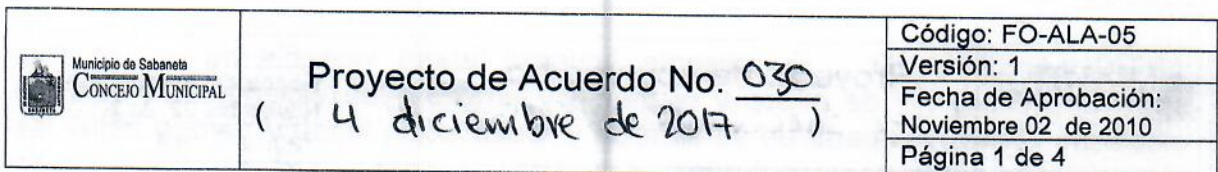 Municipio de Sabaneta
CONCEJO MUNICIPAL
Proyecto de Acuerdo No. 030
( 4 diciembre de 2017 )
Código: FO-ALA-05
Versión: 1
Fecha de Aprobación:
Noviembre 02 de 2010
Página 1 de 4